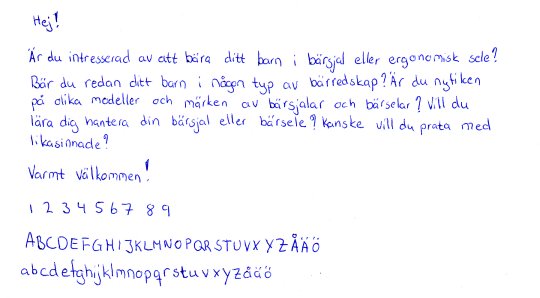 Hej!
Är du intresserad av att bära ditt barn i bärsjal eller ergonomisk sele?
Bär du redan ditt barn i någon typ av bärredskap? Är du nyfiken
på olika modeller och märken av bärsjalar och bärselar? Vill du
lära dig hantera din bärsjal eller bärsele? Kanske vill du prata med
likasinnade?
Varmt välkommen!
1 2 3 4 5 6 7 8 9
ABCDEFGHIJKLMNOPQRSTUVXYZÅÄÖ
abcdefghijklmnopqrstuvxyzåäö